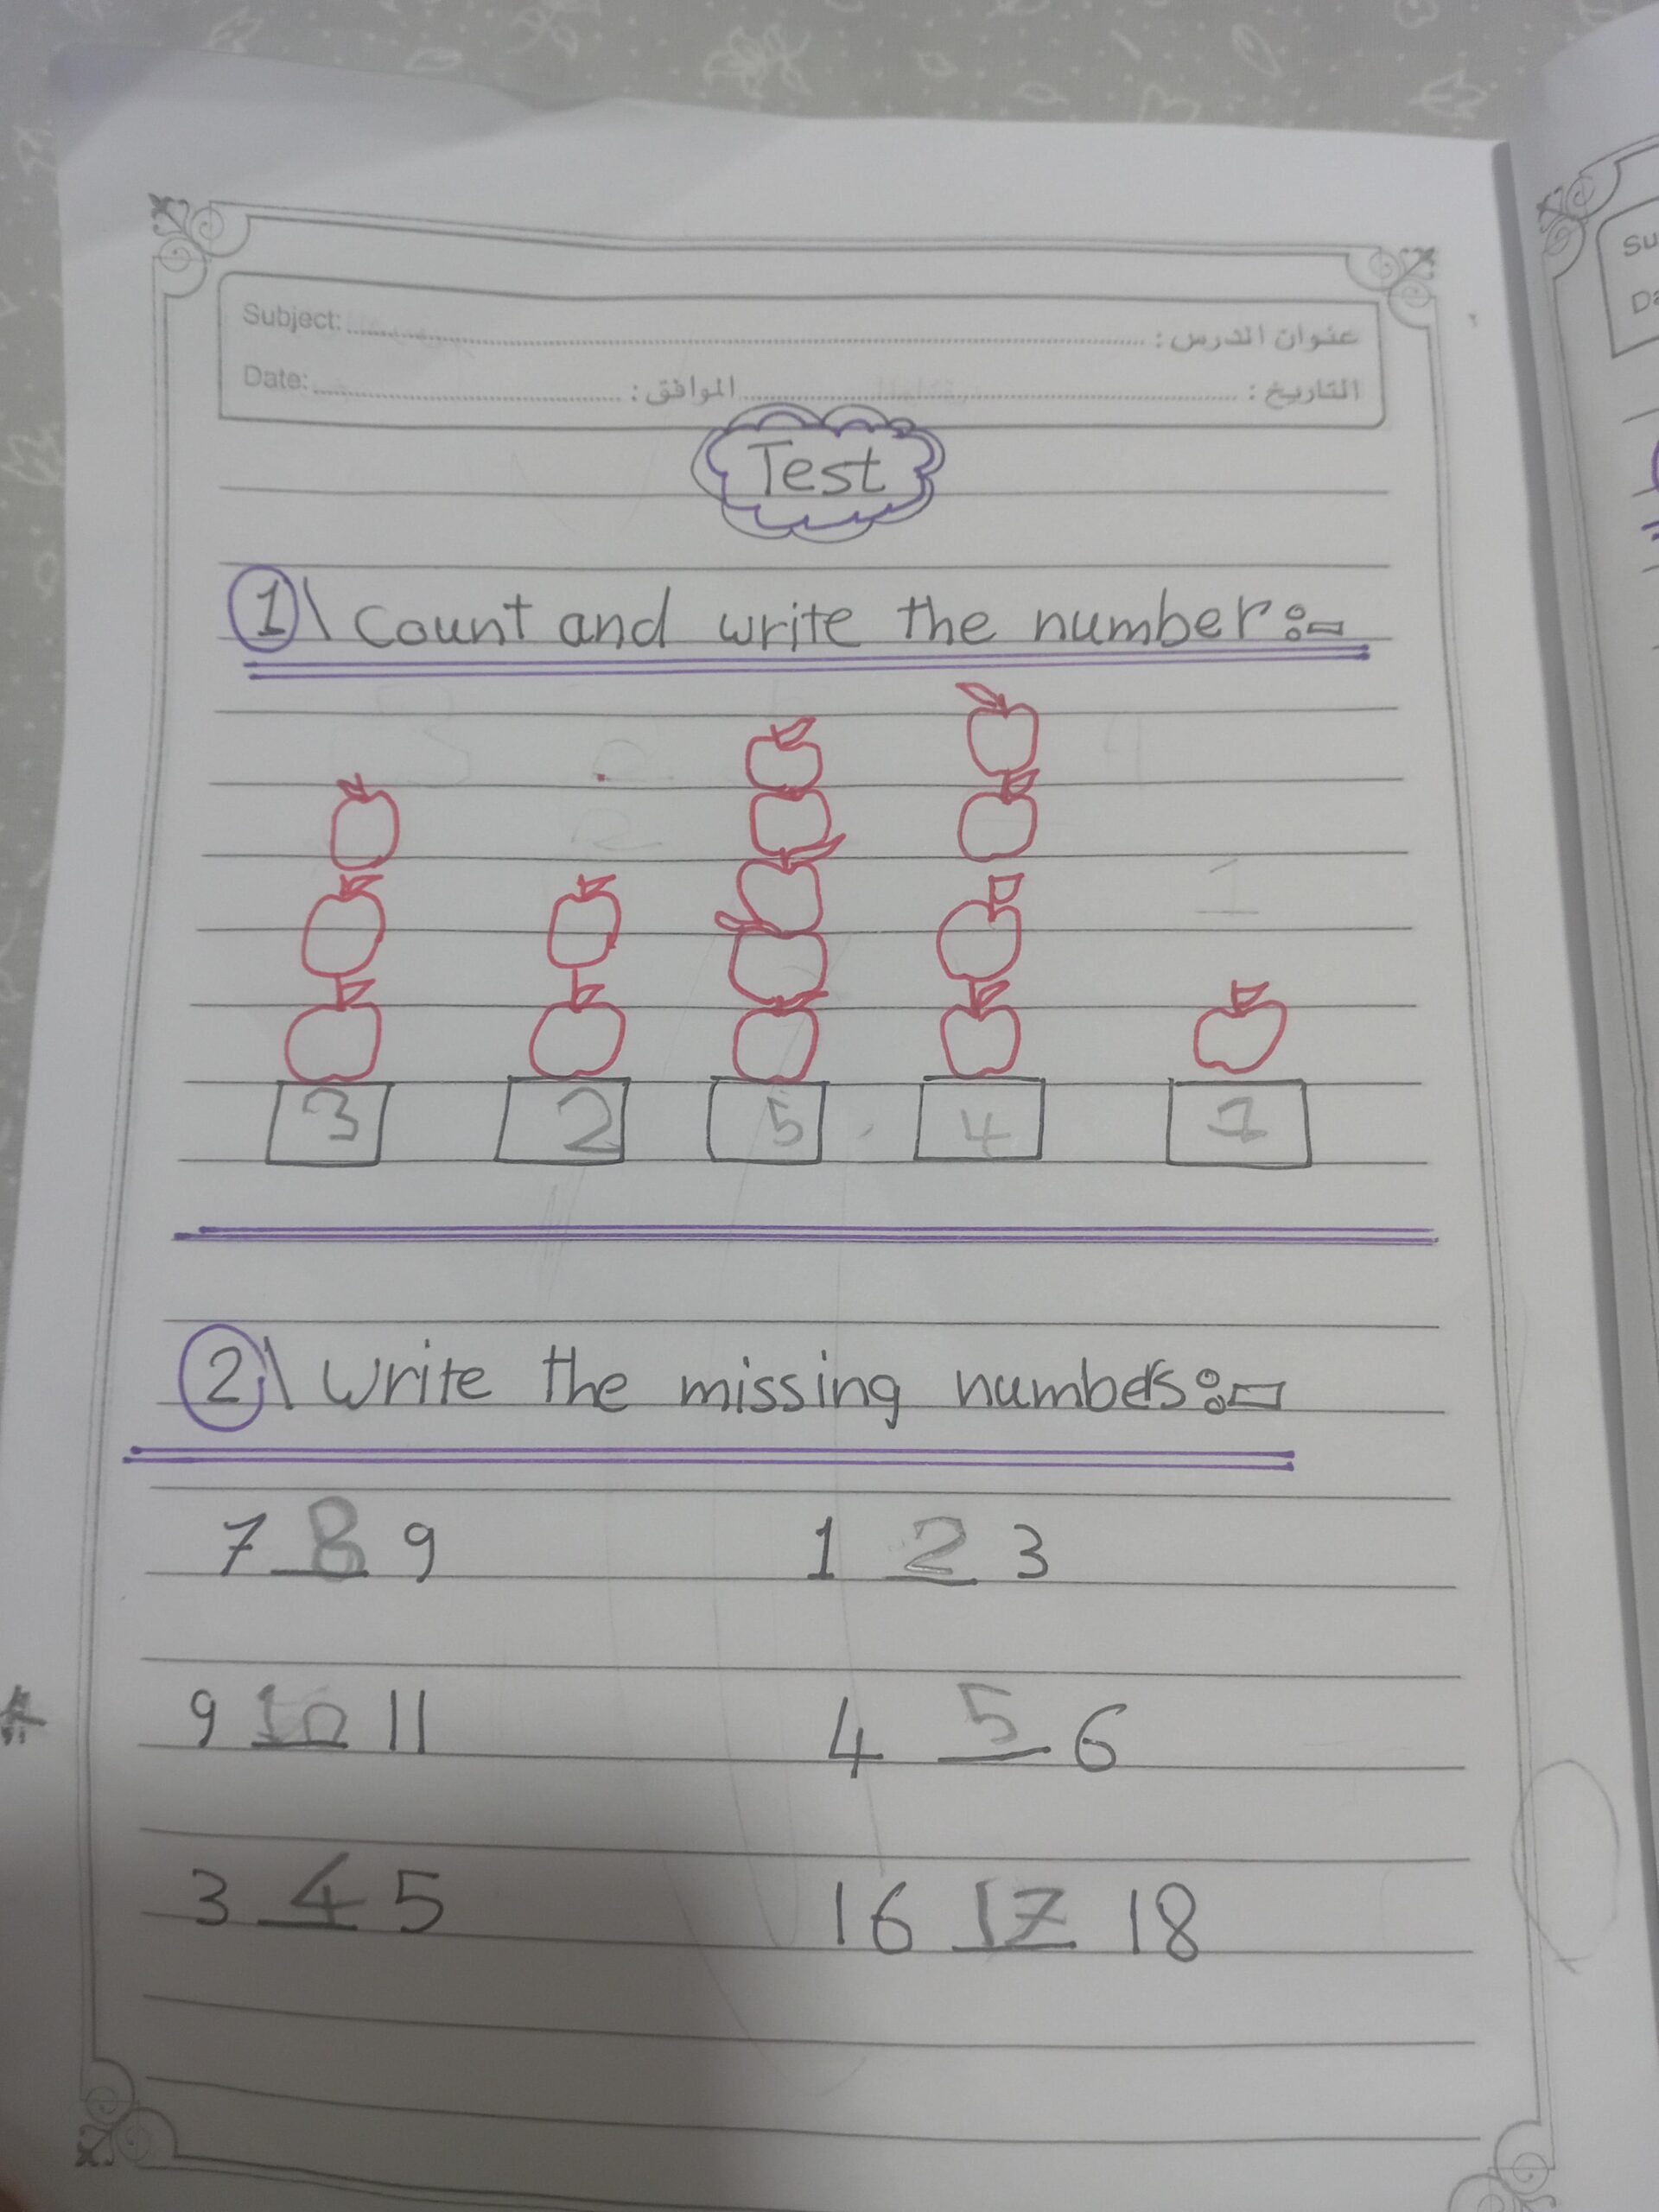 Subject: عنوان الدرس :
Date: الموافق : التاريخ :
Test
1\ Count and write the number:-
3 2 5 4 1
2\ Write the missing numbers:-
7 8 9 1 2 3
9 10 11 4 5 6
3 4 5 16 17 18